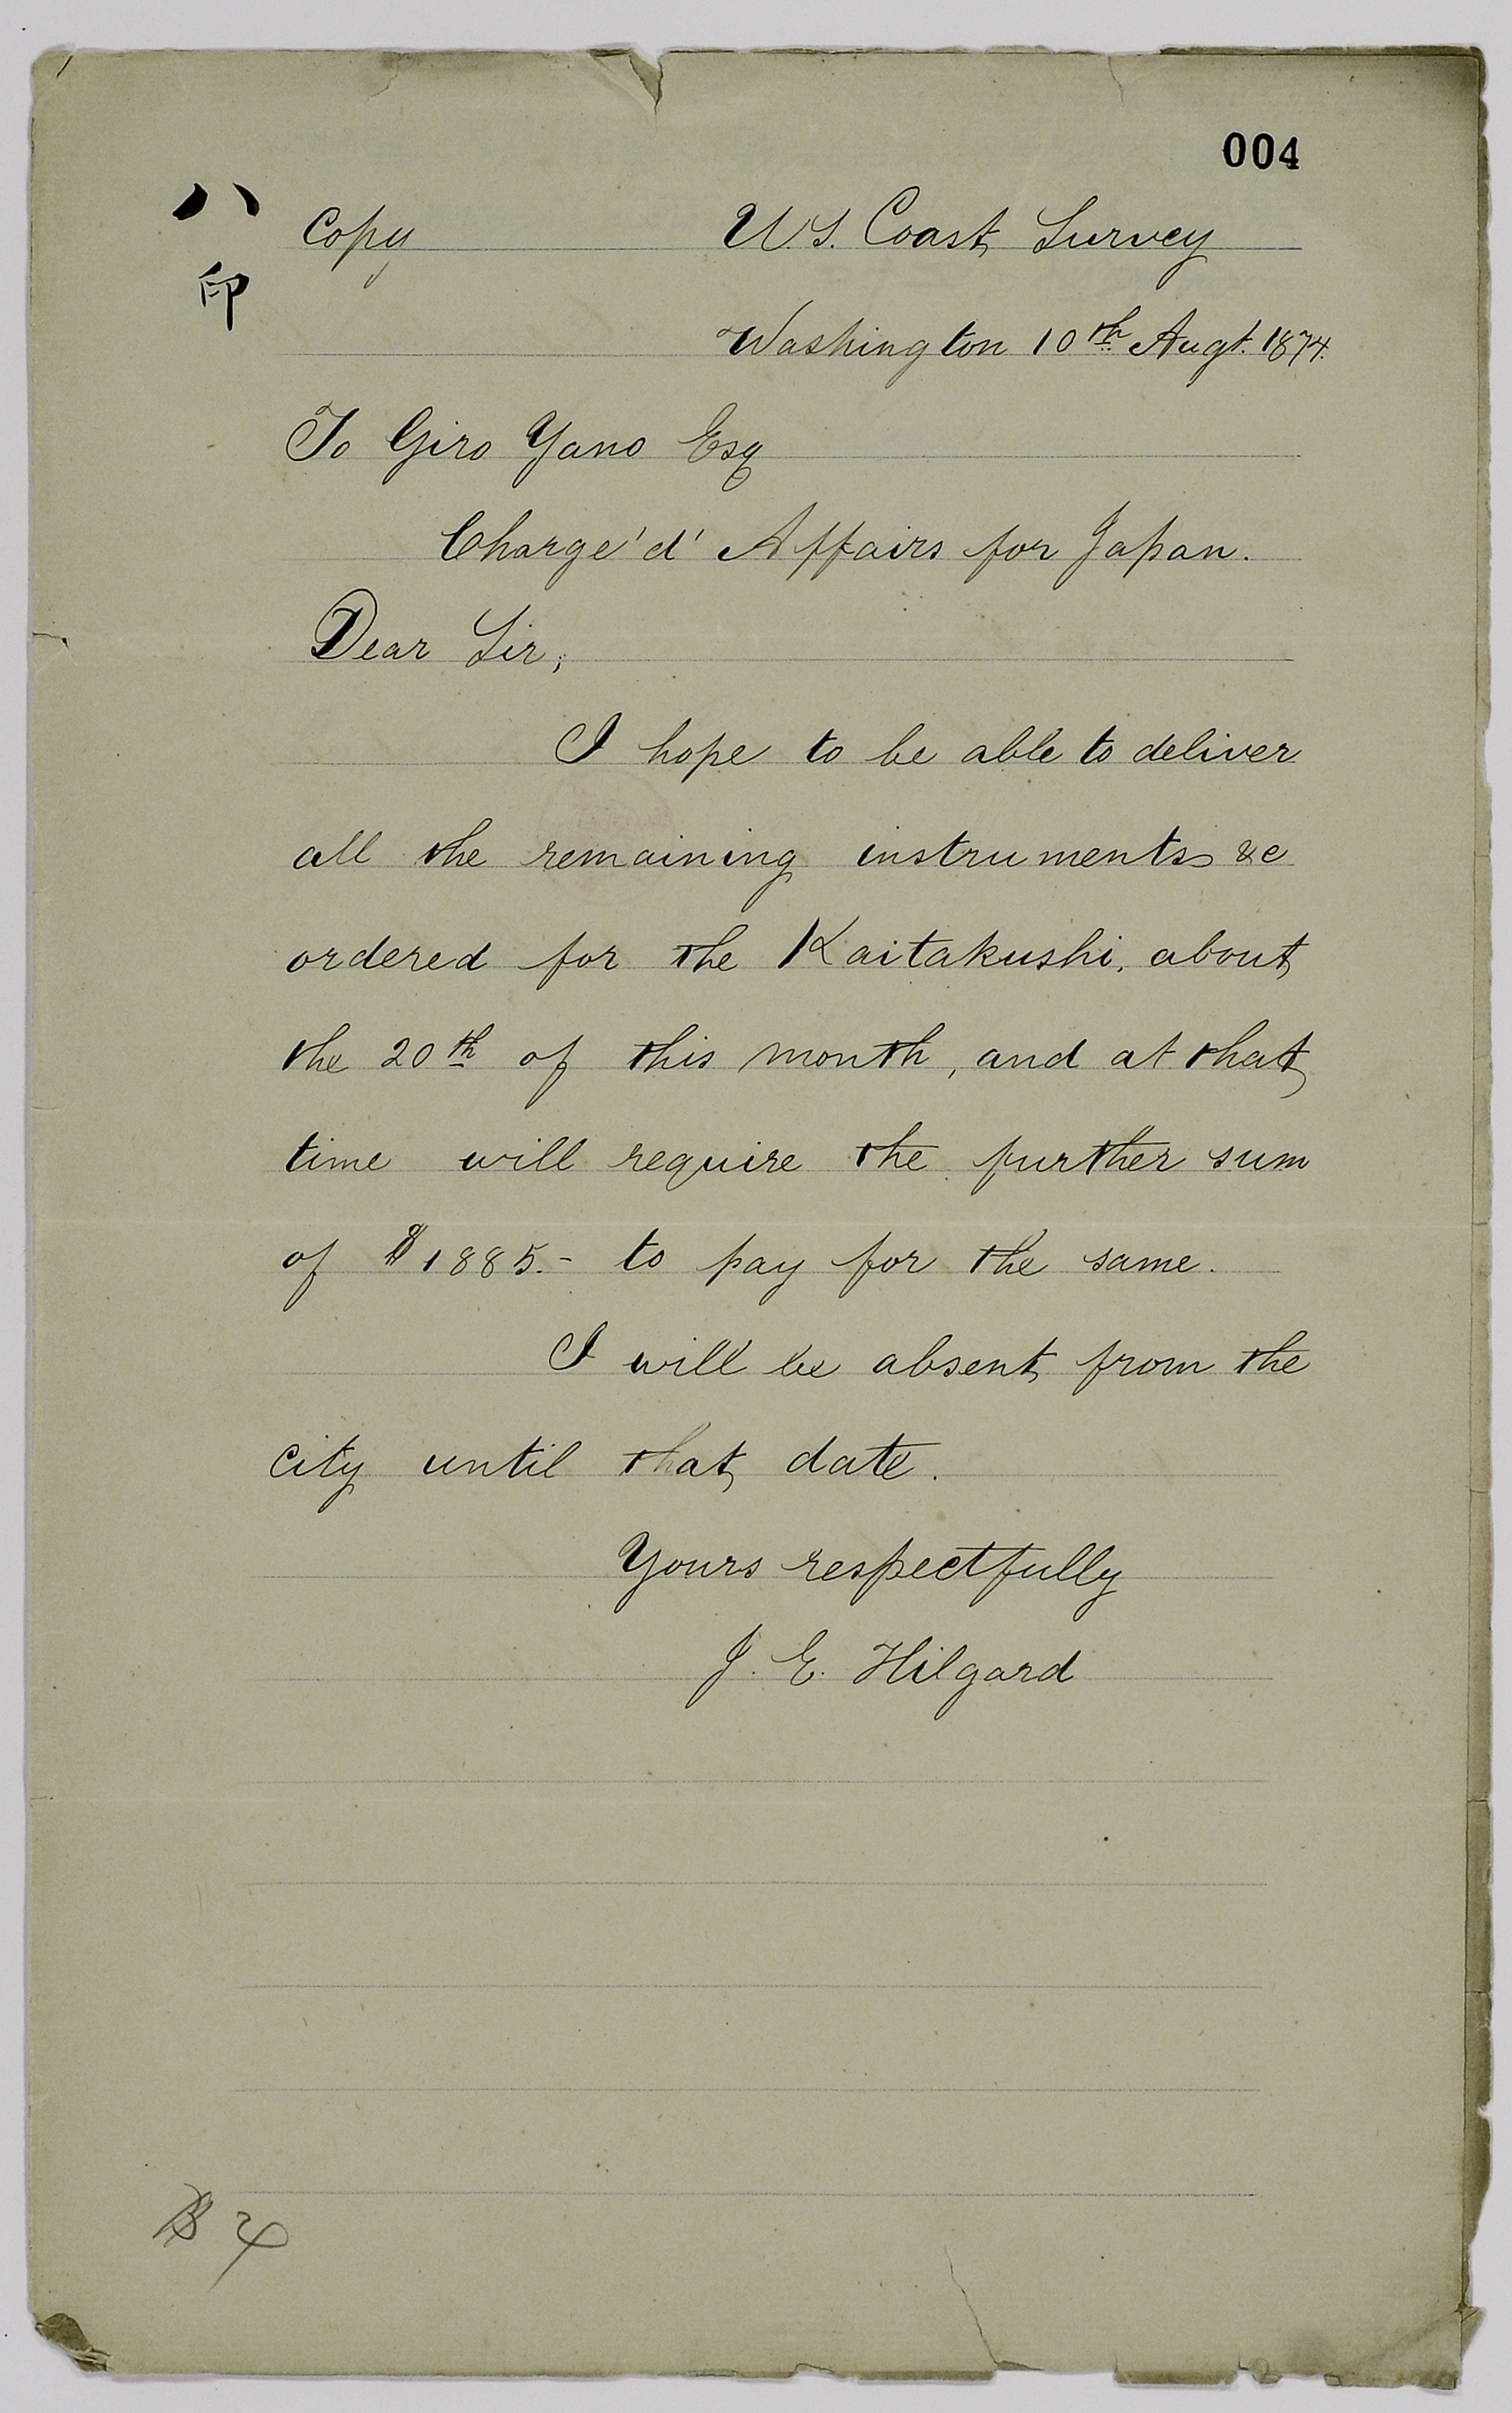 004
八印
Copy U.S. Coast Survey
Washington 10th Augt. 1874.
To Giro Yano Esq
Charge'd' Affairs for Japan.
Dear Sir,
I hope to be able to deliver
all the remaining instruments &c
ordered for the Kaitakushi, about
the 20th of this month, and at that
time will require the further sum
of $1885.- to pay for the same.
I will be absent from the
city until that date.
Yours respectfully
J. E. Hilgard